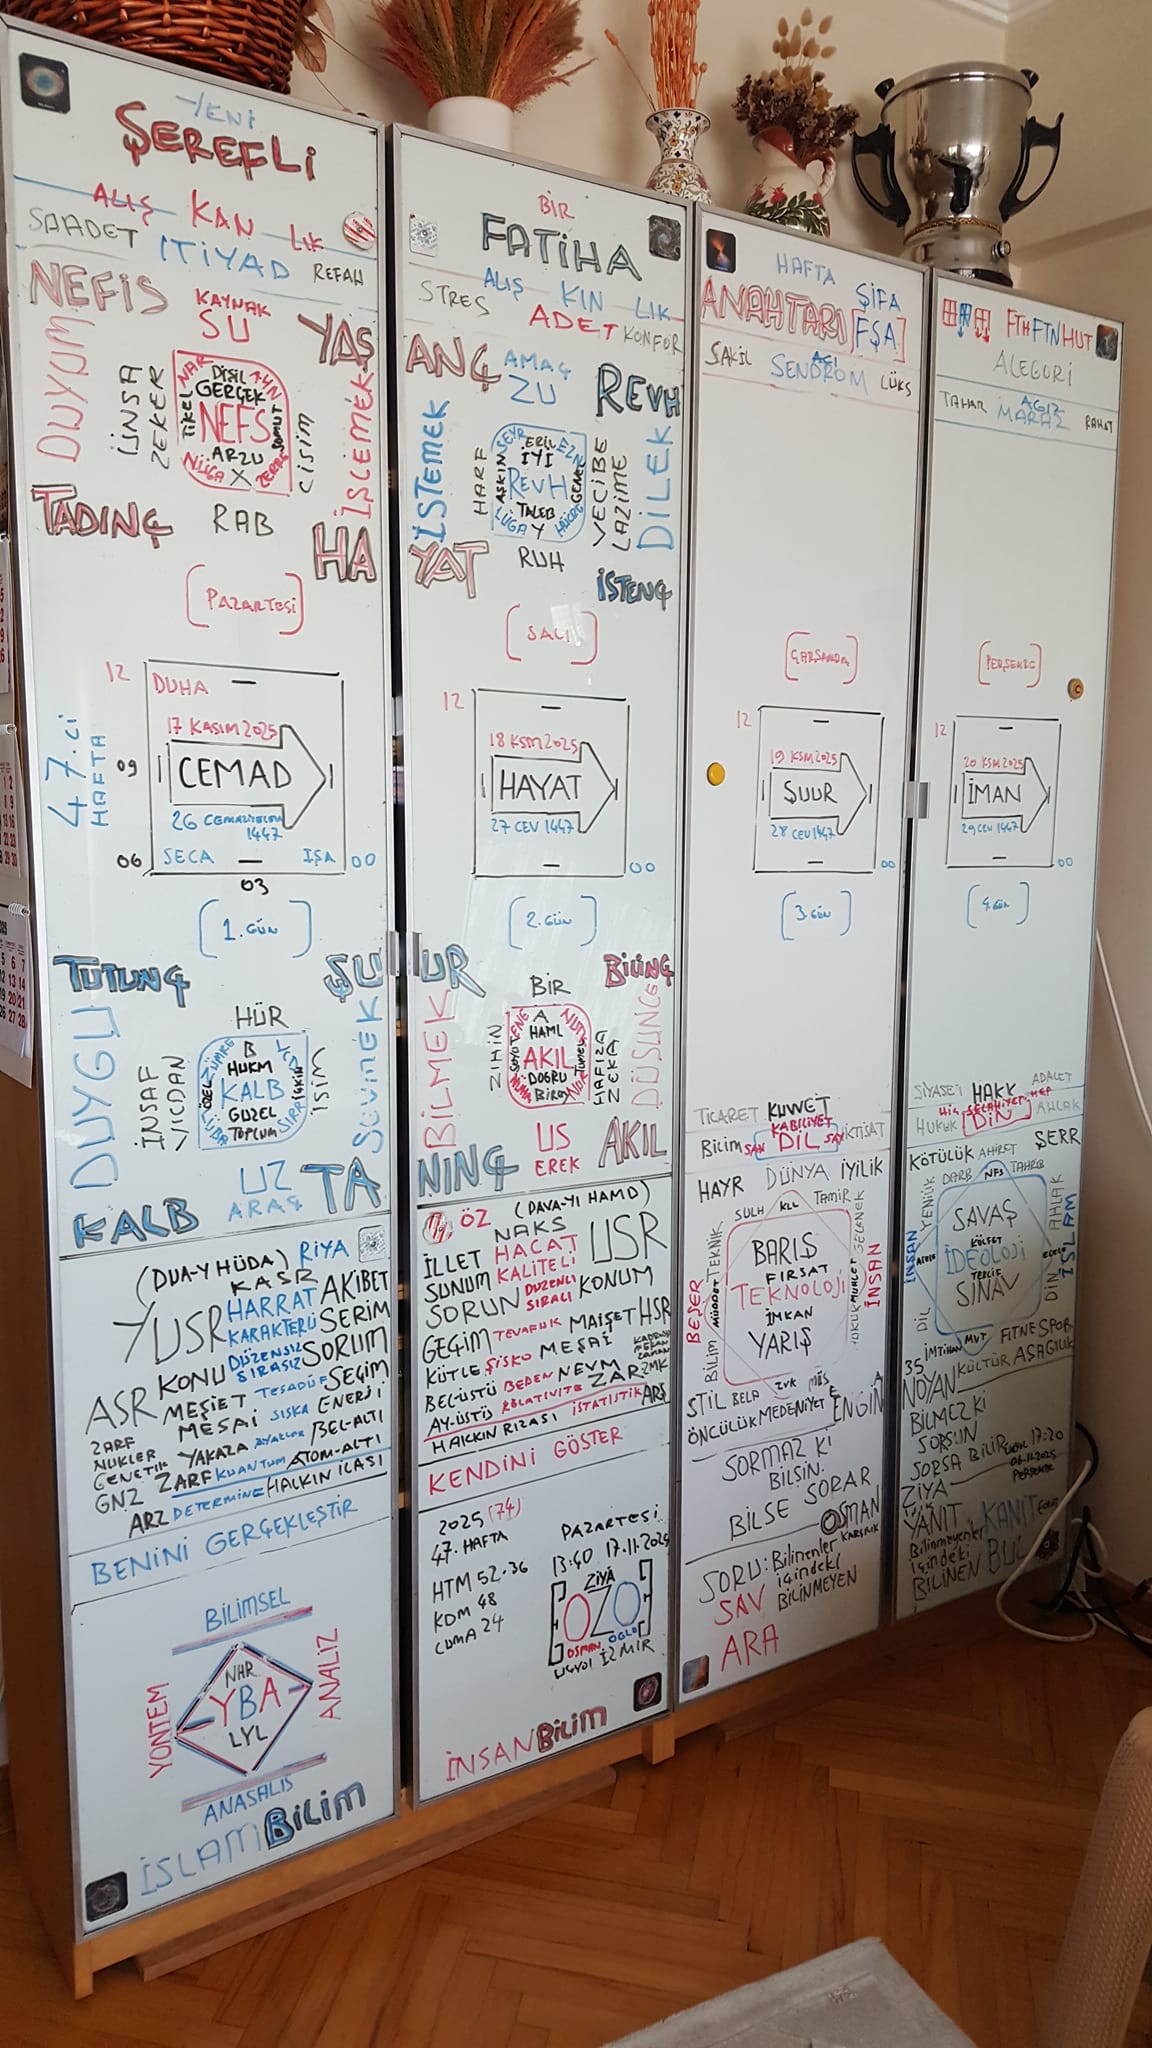 YENİ
ŞEREFLİ
ALIŞ KAN LIK
SAADET İTİYAD REFAH
NEFİS KAYNAK YAŞ
SU
DUYUM
İNSA
ZEKER
NAR
DİŞİL
GERÇEK
TİKEL
NEFS
SOMUT
ARZU
NÜGA X
CİSİM
İŞLEMEK
TADINÇ RAB HA
[PAZARTESİ]
12
DUHA
17 KASIM 2025
47.Cİ
HAFTA
09
CEMAD
1447
06 SECA IŞA 00
03
[1. GÜN]
TUTUNÇ ŞU
HÜR
DUYGU
İNSAF
VİCDAN
ÖZEL
B
HUKM
KALB
GÜZEL
TOPLUM
SIRR
İSİM
SEVMEK
UZ TA
KALB ARAÇ
(DUA-Y HÜDA) RİYA
KASR
YUSR HARRAT AKİBET
KARAKTERLİ SERİM
KONU DÜZENSİZ SORUM
SIRASIZ
ASR MEŞİET TESADÜF SEÇİM
MESAİ SISKA ENERJİ
ZARF
NUKLER YAKAZA BEL-ALTI
GENETİK ZARF KUANTUM ATOM-ALTI
GNZ
ARZ DETERMİNE HALKIN İLASI
BENİNİ GERÇEKLEŞTİR
BİLİMSEL
YÖNTEM
NHR
YBA
LYL
ANALİZ
ANASALIS
İSLAMBİLİM
BİR
FATİHA
ALIŞ KIN LIK
STRES ADET KONFOR
ANÇ AMAÇ REVH
ZU
İSTEMEK
HARF
AŞKIN
SEYR
ERİL
EZN
İYİ
REVH
GENEL
TALEB
LÜGA Y HÜCRE
VECİBE
LAZİME
DİLEK
YAT RUH İSTENÇ
[SALI]
12
18 KSM 2025
HAYAT
27 CEV 1447
00
[2. GÜN]
UR BİR BİLİNÇ
BİLMEK
ZİHİN
A
HAML
AKIL
DOĞRU
BİREY
TÜMEL
HAFIZA
ZEKA
DÜŞÜNCE
NİNÇ US AKIL
EREK
ÖZ (DAVA-YI HAMD)
NAKS
İLLET HACAT USR
SUNUM KALİTELİ
SORUN DÜZENLİ KONUM
SIRALI
GEÇİM TEVAFUK MAİŞET HSR
KÜTLE ŞİŞKO MEŞAİ
BEL-ÜSTÜ BEDEN NEVM ZMK
AY-ÜSTÜ RÖLATİVİTE ZAR
HAKKIN RIZASI İSTATİSTİK ARŞ
KENDİNİ GÖSTER
2025 (74)
47. HAFTA
HTM 52.36
KDM 48
CUMA 24
PAZARTESİ
13:40 17.11.2025
ZİYA
OZO
OSMAN OGLU
UÇYOL İZMİR
İNSANBİLİM
HAFTA
ANAHTARI ŞİFA
[FŞA]
ŞAKİL AÇI LÜKS
SENDROM
[ÇARŞAMBA]
12
19 KSM 2025
ŞUUR
28 CEV 1447
00
[3. GÜN]
TİCARET KUVVET
KABİLİYET
BİCİM SAN DİL SAY İKTİSAT
HAYR DÜNYA İYİLİK
SULH KLL TAMİR
BEŞER
BİLİM
MÜDDET
TEKNİK
BARIŞ
FIRSAT
TEKNOLOJİ
İMKAN
YARIŞ
HUKUK
MUHLET
GELENEK
İNSAN
STİL BELA ZVK
ÖNCÜLÜK MEDENİYET ENGİN
SORMAZ Kİ
BİLSİN
BİLSE SORAR
OSMAN
KARŞIYIK
SORU: Bilinenler
içindeki
SAV BİLİNMEYEN
ARA
FTH FTN HUT
ALEGORİ
TAHAR AGIZ RAHAT
MARAZ
[PERŞEMBE]
12
20 KSM 2025
İMAN
29 CEV 1447
00
[4. GÜN]
SİYASET HAKK ADALET
HİÇ SELAHİYET HEP
HUKUK DİN AHLAK
KÖTÜLÜK AHİRET ŞERR
DARB NFS TAHRİB
İNSAN
DİL
YENİLİK
SAVAŞ
KÜLFET
İDEOLOJİ
TEKLİF
SINAV
DİN
AHLAK
İSLAM
İMTİHAN MVT FİTNE SPOR
35 KÜLTÜR AŞAĞILIK
NOYAN
BİLMEZ Kİ
SORSUN
SORSA BİLİR 17:20
06.11.2025
PERŞEMBE
ZİYA
YANIT KANIT
Bilinmeyenler
içindeki
BİLİNEN BUL